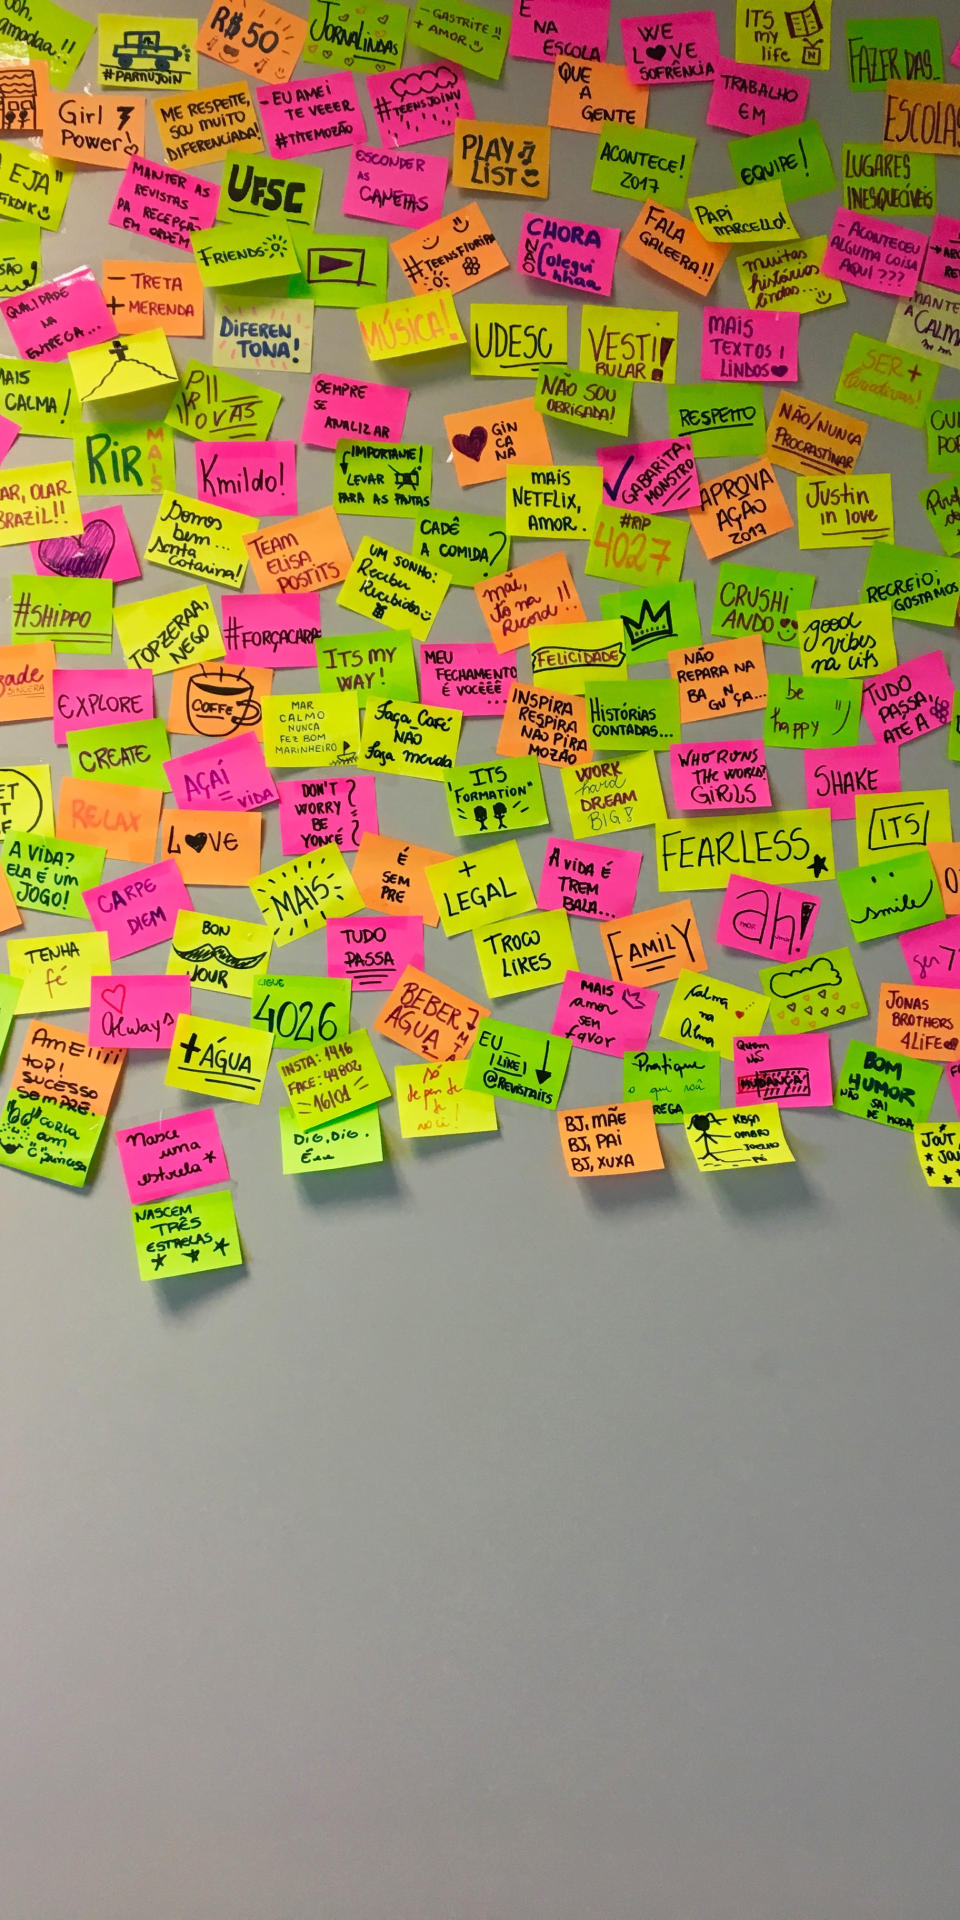 #PARTIUJOIN
R$50
JORNALINDAS
- GASTRITE !!
+ AMOR
E
NA
ESCOLA
WE
L❤VE
SOFRÊNCIA
ITS
my
life
FAZER DAS...
Girl
Power
ME RESPEITE,
SOU MUITO
DIFERENCIADA!
- EU AMEI
TE VEEER
#TITEMOZÃO
#TEENSJOINV
QUE
A
GENTE
TRABALHO
EM
ESCOLAS
EJA"
MANTER AS
REVISTAS
DA RECEPÇÃO
EM ORDEM
UFSC
ESCONDER
AS
CANETAS
PLAY
LIST
ACONTECE!
2017
EQUIPE!
LUGARES
INESQUECÍVEIS
FRIENDS
#TEENSFLORIPA
CHORA
NÃO
Colegui
nhaa
FALA
GALEERA!!
PAPI
MARCELLO!
muitas
histórias
lindas...
- ACONTECEU
ALGUMA COISA
AQUI ???
QUALIDADE
NA
ENTREGA...
- TRETA
+ MERENDA
DIFEREN
TONA!
MÚSICA!
UDESC
VESTI
BULAR!
MAIS
TEXTOS
LINDOS❤
MANTE
A CALMA
SER +
MAIS
CALMA!
P//
PROVAS
SEMPRE
SE
ANALIZAR
GIN
CA
NA
NÃO SOU
OBRIGADA!
RESPEITO
NÃO/NUNCA
PROCRASTINAR
RIR
MAIS
Kmildo!
IMPORTANTE!
LEVAR
PARA AS PAUTAS
MAIS
NETFLIX,
AMOR.
GABARITA,
MONSTRO
APROVA
AÇÃO
2017
Justin
in love
AR, OLAR
BRAZIL!!
Somos
bem...
santa
catarina!
TEAM
ELISA
POSTITS
CADÊ
A COMIDA?
#RIP
4027
UM SONHO:
Receber
Recibidos
mãe,
tô na
Record !!
CRUSHI
ANDO
RECREIO;
GOSTAMOS
#SHIPPO
TOPZERAA,
NEGO
#FORÇACARA
ITS MY
WAY!
MEU
FECHAMENTO
É VOCÊÊÊ
FELICIDADE
NÃO
REPARA NA
BA GUN ÇA...
good
vibes
na its
SINCERA
EXPLORE
COFFE
MAR
CALMO
NUNCA
FEZ BOM
MARINHEIRO
Faça Café
NÃO
faça merda
INSPIRA
RESPIRA
NÃO PIRA
MOZÃO
HISTÓRIAS
CONTADAS...
be
happy
TUDO
PASSA
ATÉ A
CREATE
AÇAÍ
VIDA
ITS
"FORMATION"
WORK
hard
DREAM
BIG!
WHO RUNS
THE WORLD?
GIRLS
SHAKE
RELAX
L❤VE
DON'T
WORRY
BE
YONCÉ
FEARLESS
ITS
A VIDA?
ELA É UM
JOGO!
CARPE
DIEM
MAIS
É
SEM
PRE
+
LEGAL
A VIDA É
TREM
BALA...
ah!
smile
TENHA
fé
BON
JOUR
TUDO
PASSA
TROCO
LIKES
FAMILY
Always
LIGUE
4026
BEBER
ÁGUA
MAIS
amor
SEM
favor
Calma
na
Alma
JONAS
BROTHERS
4LIFE
AMEI!!!!
TOP!
SUCESSO
SEMPRE.
+ÁGUA
INSTA: 4446
FACE: 44802
16/01
só
depende
de
você!
EU
I LIKE!
@REVISTAITS
Pratique
o que você
PREGA
Quem
NÃO
MUDANÇA
BOM
HUMOR
NÃO SAI
DE MODA
DIG, DIG.
BJ, MÃE
BJ, PAI
BJ, XUXA
KBÇA
OMBRO
JOELHO
PÉ
Nasce
uma
estrela
NASCEM
TRÊS
ESTRELAS